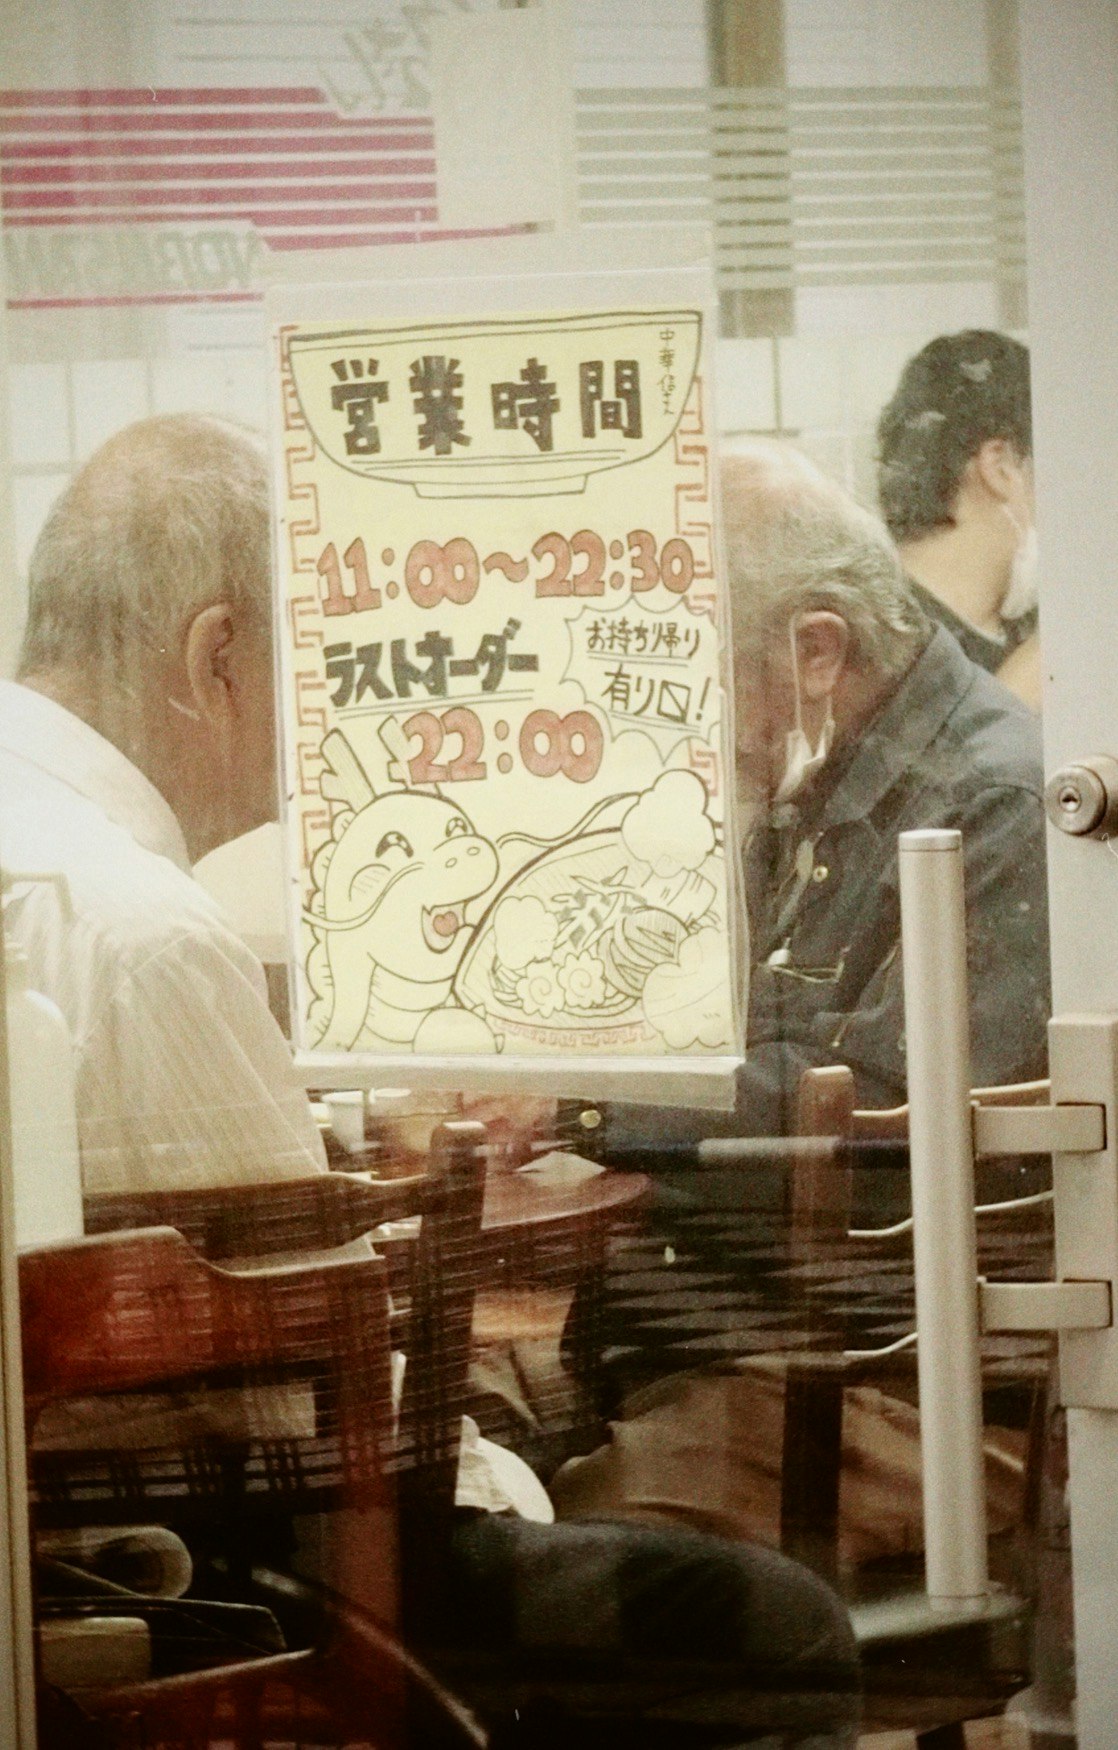 営業時間
中華
11:00~22:30
ラストオーダー
22:00
お持ち帰り
有り〼!